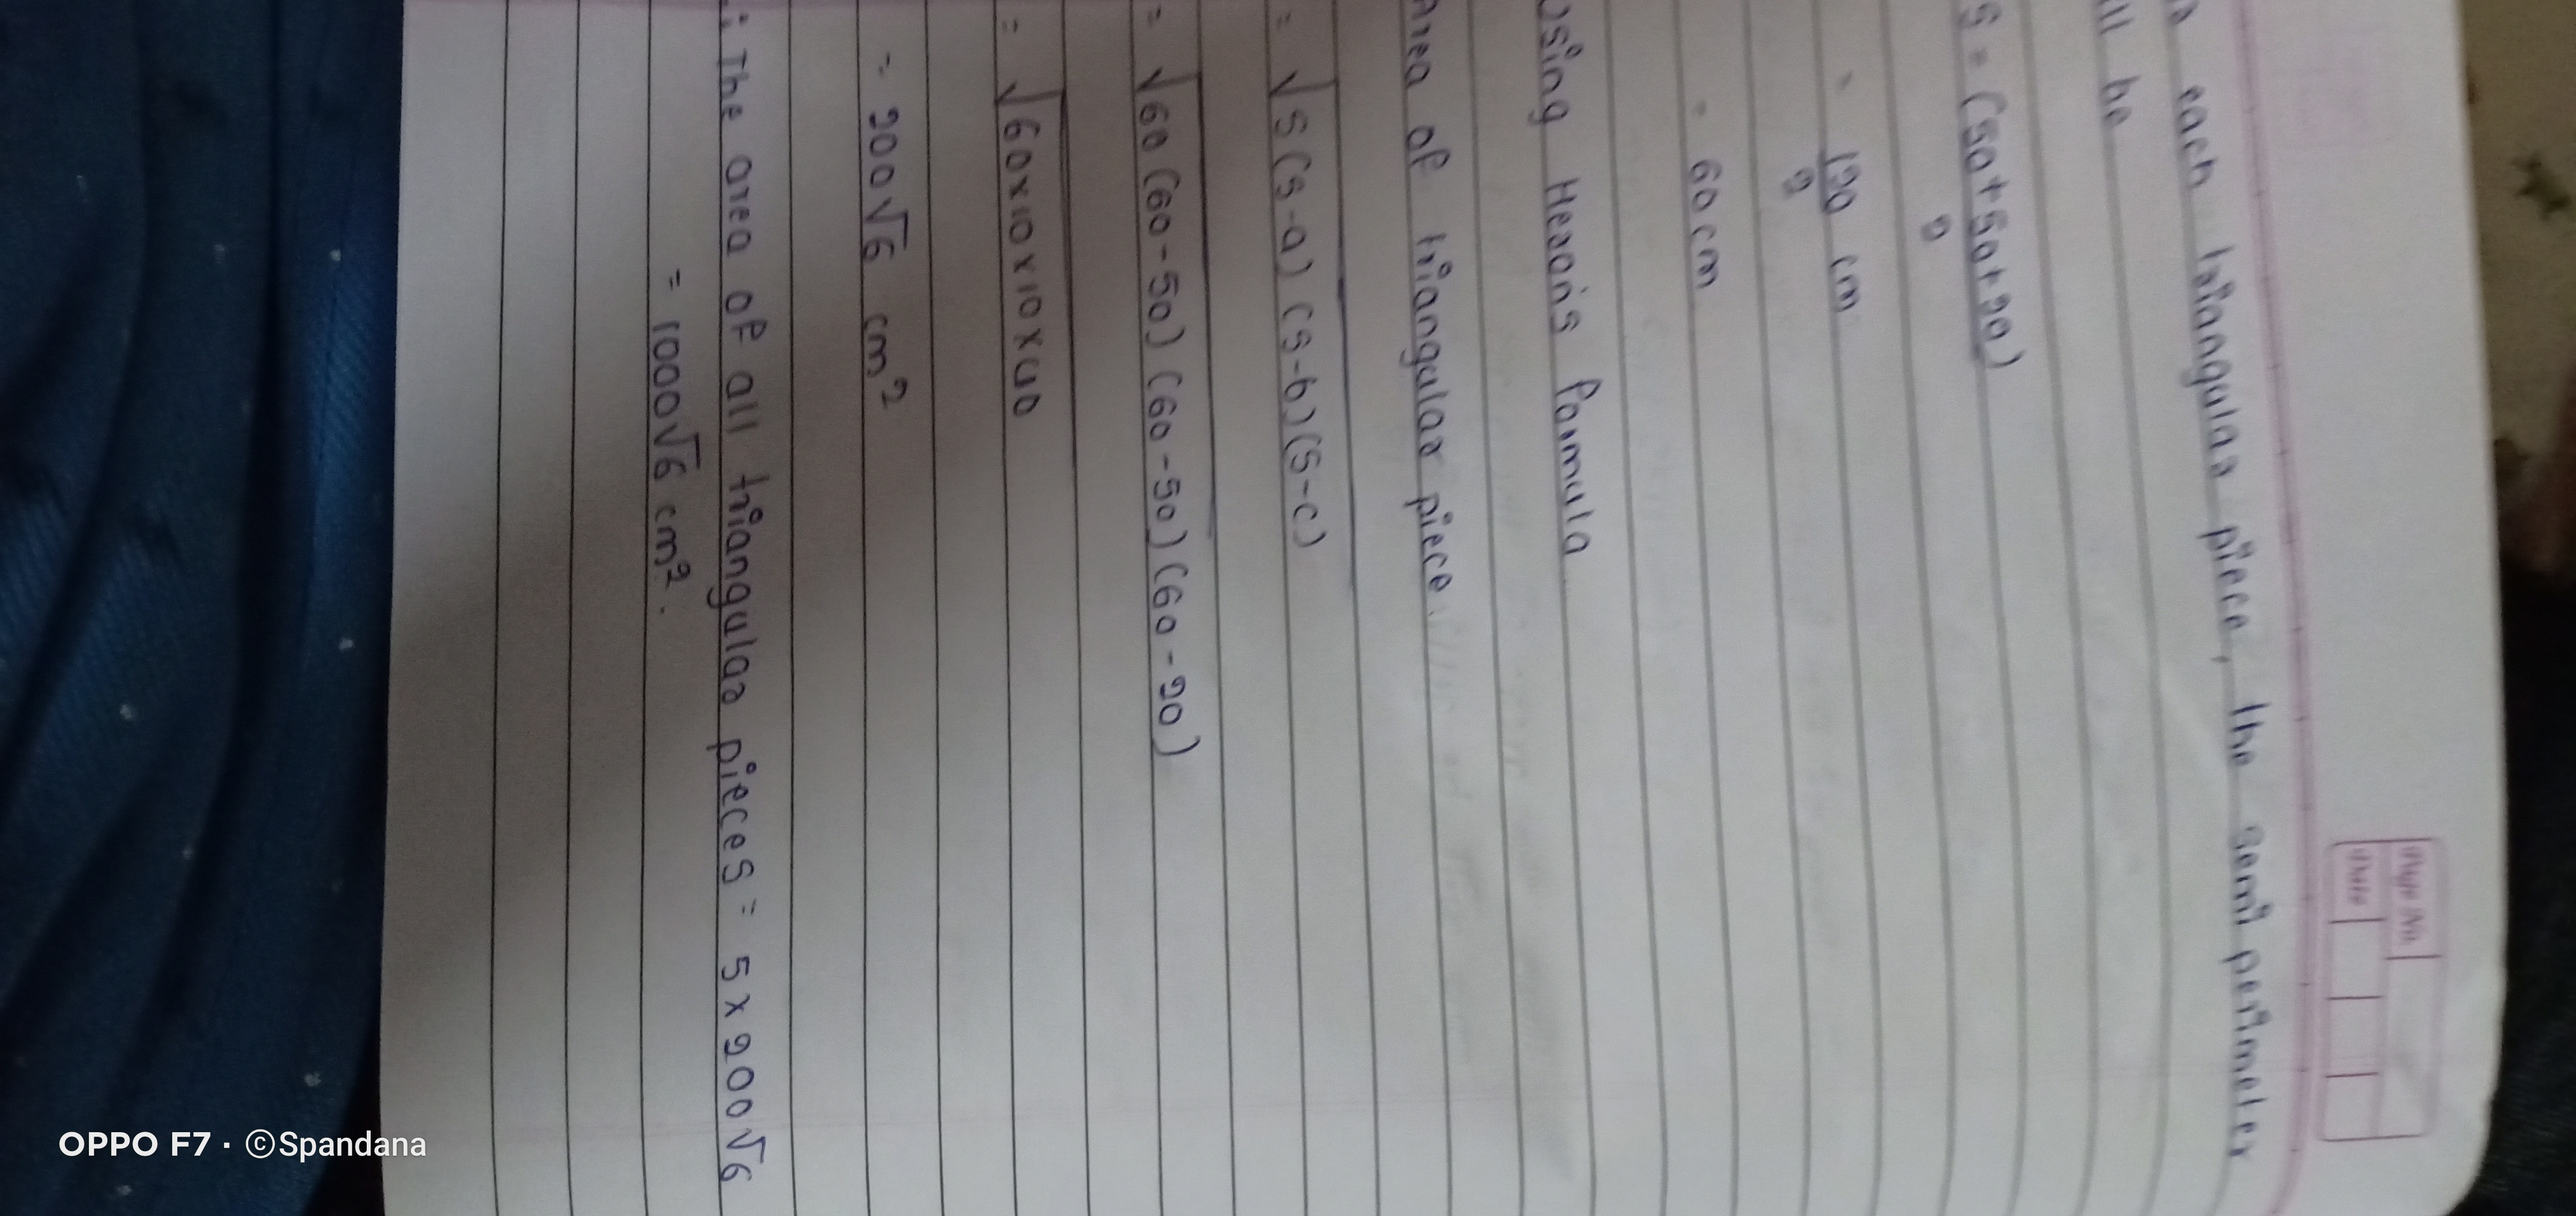 each triangular piece, the semi perimeter
ll be
S = (50+50+20)
2
= 120 cm
2
= 60cm
Using Heron's Formula
Area of triangular piece.
= √S(S-a)(S-b)(S-c)
= √60(60-50)(60-50)(60-20)
= √60×10×10×40
= 200√6 cm²
∴ The area of all triangular pieces = 5×200√6
= 1000√6 cm².
Page No.
Date
OPPO F7 · ©Spandana